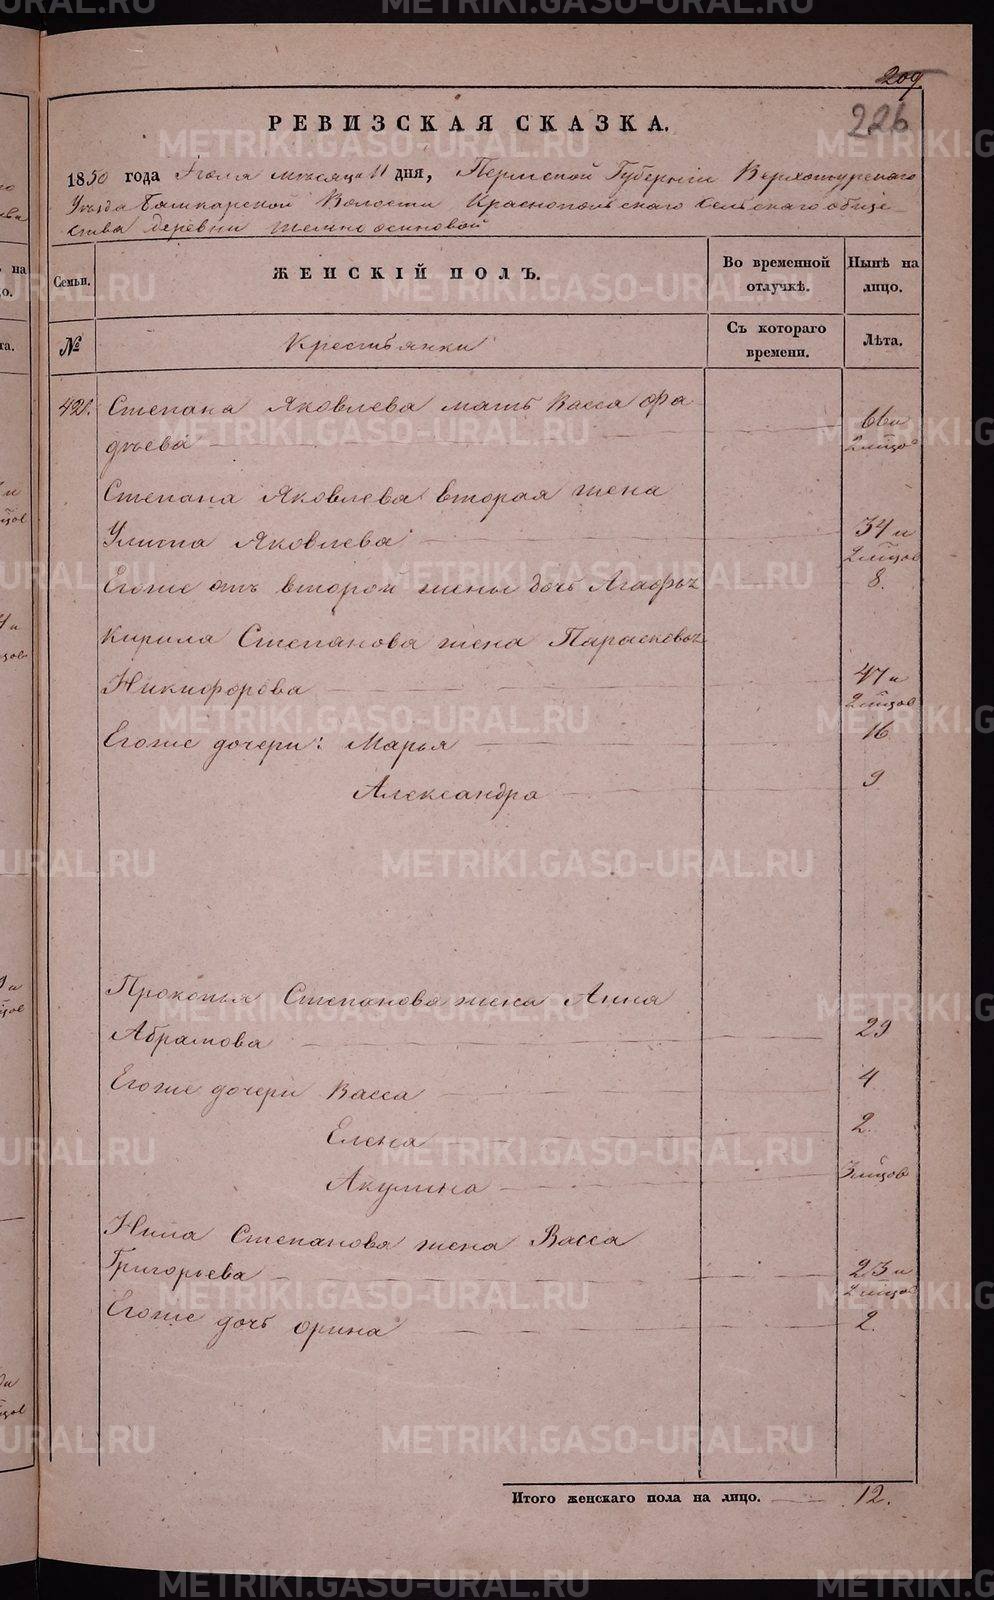 209
226
РЕВИЗСКАЯ СКАЗКА.
1850 года Іюля мѣсяца 11 дня, Пермской Губерніи Верхотурскаго
Уѣзда Башкарской Волости Краснопольскаго сельскаго обще-
ства деревни темноосиновой
Семьи. ЖЕНСКІЙ ПОЛЪ. Во временной отлучкѣ. Нынѣ на лицо.
№ Крестьянки Съ котораго времени. Лѣта.
420. Степана Яковлева мать Васса Фа
дѣева 66 и
2 мѣсяцов
Степана Яковлева вторая жена
Улита Яковлева 34 и
2 мѣсяцов
Егоже отъ второй жены дочь Агафья 8.
Кирила Степанова жена Парасковья
Никифорова 47 и
2 мѣсяцов
Егоже дочери: Марья 16
Александра 9
Прокопья Степанова жена Анна
Абрамова 29
Егоже дочери Васса 4
Елена 2.
Акулина 3 мѣсяцов
Нила Степанова жена Васса
Григорьева 23 и
2 мѣсяцов
Егоже дочь орина 2.
Итого женскаго пола на лицо. 12.
METRIKI.GASO-URAL.RU